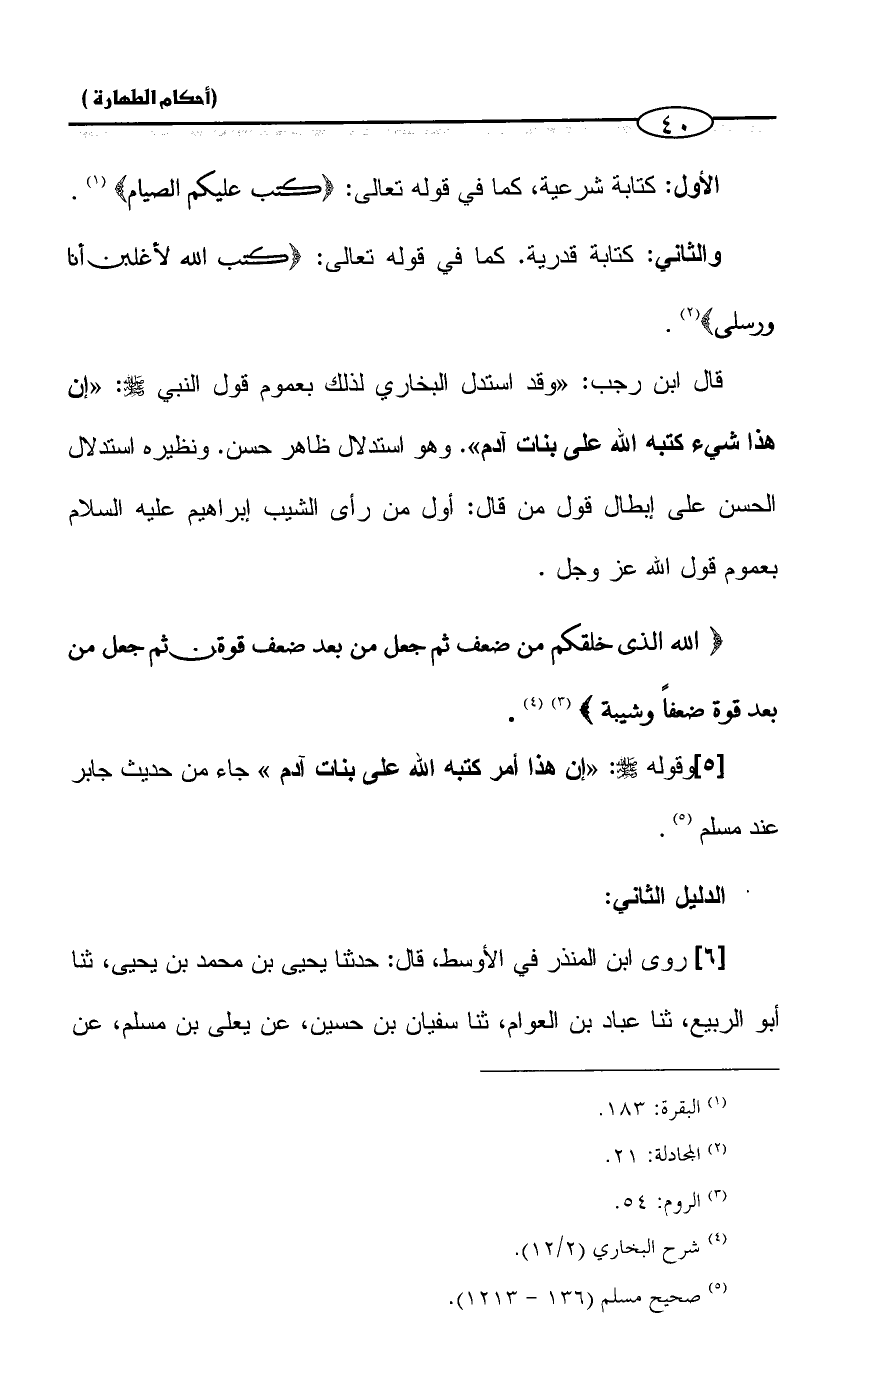 (أحكام الطهارة )
٤٠
الأول: كتابة شرعية، كما في قوله تعالى: ﴿كتب عليكم الصيام﴾ (١) .
والثاني: كتابة قدرية. كما في قوله تعالى: ﴿كتب الله لأغلبن أنا
ورسلى﴾(٢) .
قال ابن رجب: «وقد استدل البخاري لذلك بعموم قول النبي ﷺ: «إن
هذا شيء كتبه الله على بنات آدم». وهو استدلال ظاهر حسن. ونظيره استدلال
الحسن على إبطال قول من قال: أول من رأى الشيب إبراهيم عليه السلام
بعموم قول الله عز وجل .
﴿ الله الذى خلقكم من ضعف ثم جعل من بعد ضعف قوة ثم جعل من
بعد قوة ضعفاً وشيبة ﴾ (٣) (٤) .
[٥]وقوله ﷺ: «إن هذا أمر كتبه الله على بنات آدم » جاء من حديث جابر
عند مسلم (٥) .
الدليل الثاني:
[٦] روى ابن المنذر في الأوسط، قال: حدثنا يحيى بن محمد بن يحيى، ثنا
أبو الربيع، ثنا عباد بن العوام، ثنا سفيان بن حسين، عن يعلى بن مسلم، عن
(١) البقرة: ١٨٣.
(٢) المجادلة: ٢١.
(٣) الروم: ٥٤.
(٤) شرح البخاري (١٢/٢).
(٥) صحيح مسلم (١٣٦ - ١٢١٣).